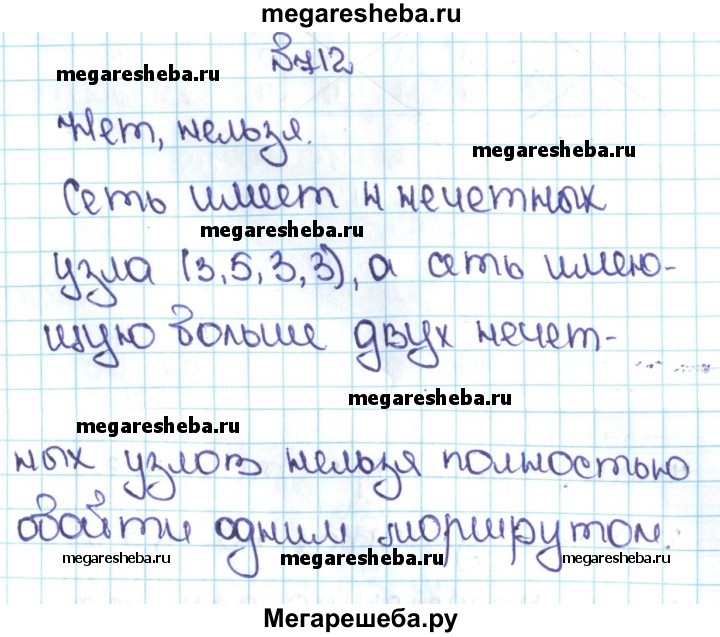 megaresheba.ru
В712
megaresheba.ru
Нет, нельзя.
megaresheba.ru
Сеть имеет 4 нечетных
megaresheba.ru
узла (3,5,3,3), а сеть имею-
щую больше двух нечет-
megaresheba.ru
megaresheba.ru
ных узлов нельзя полностью
обойти одним маршрутом.
megaresheba.ru megaresheba.ru megaresheba.ru
Мегарешеба.ру